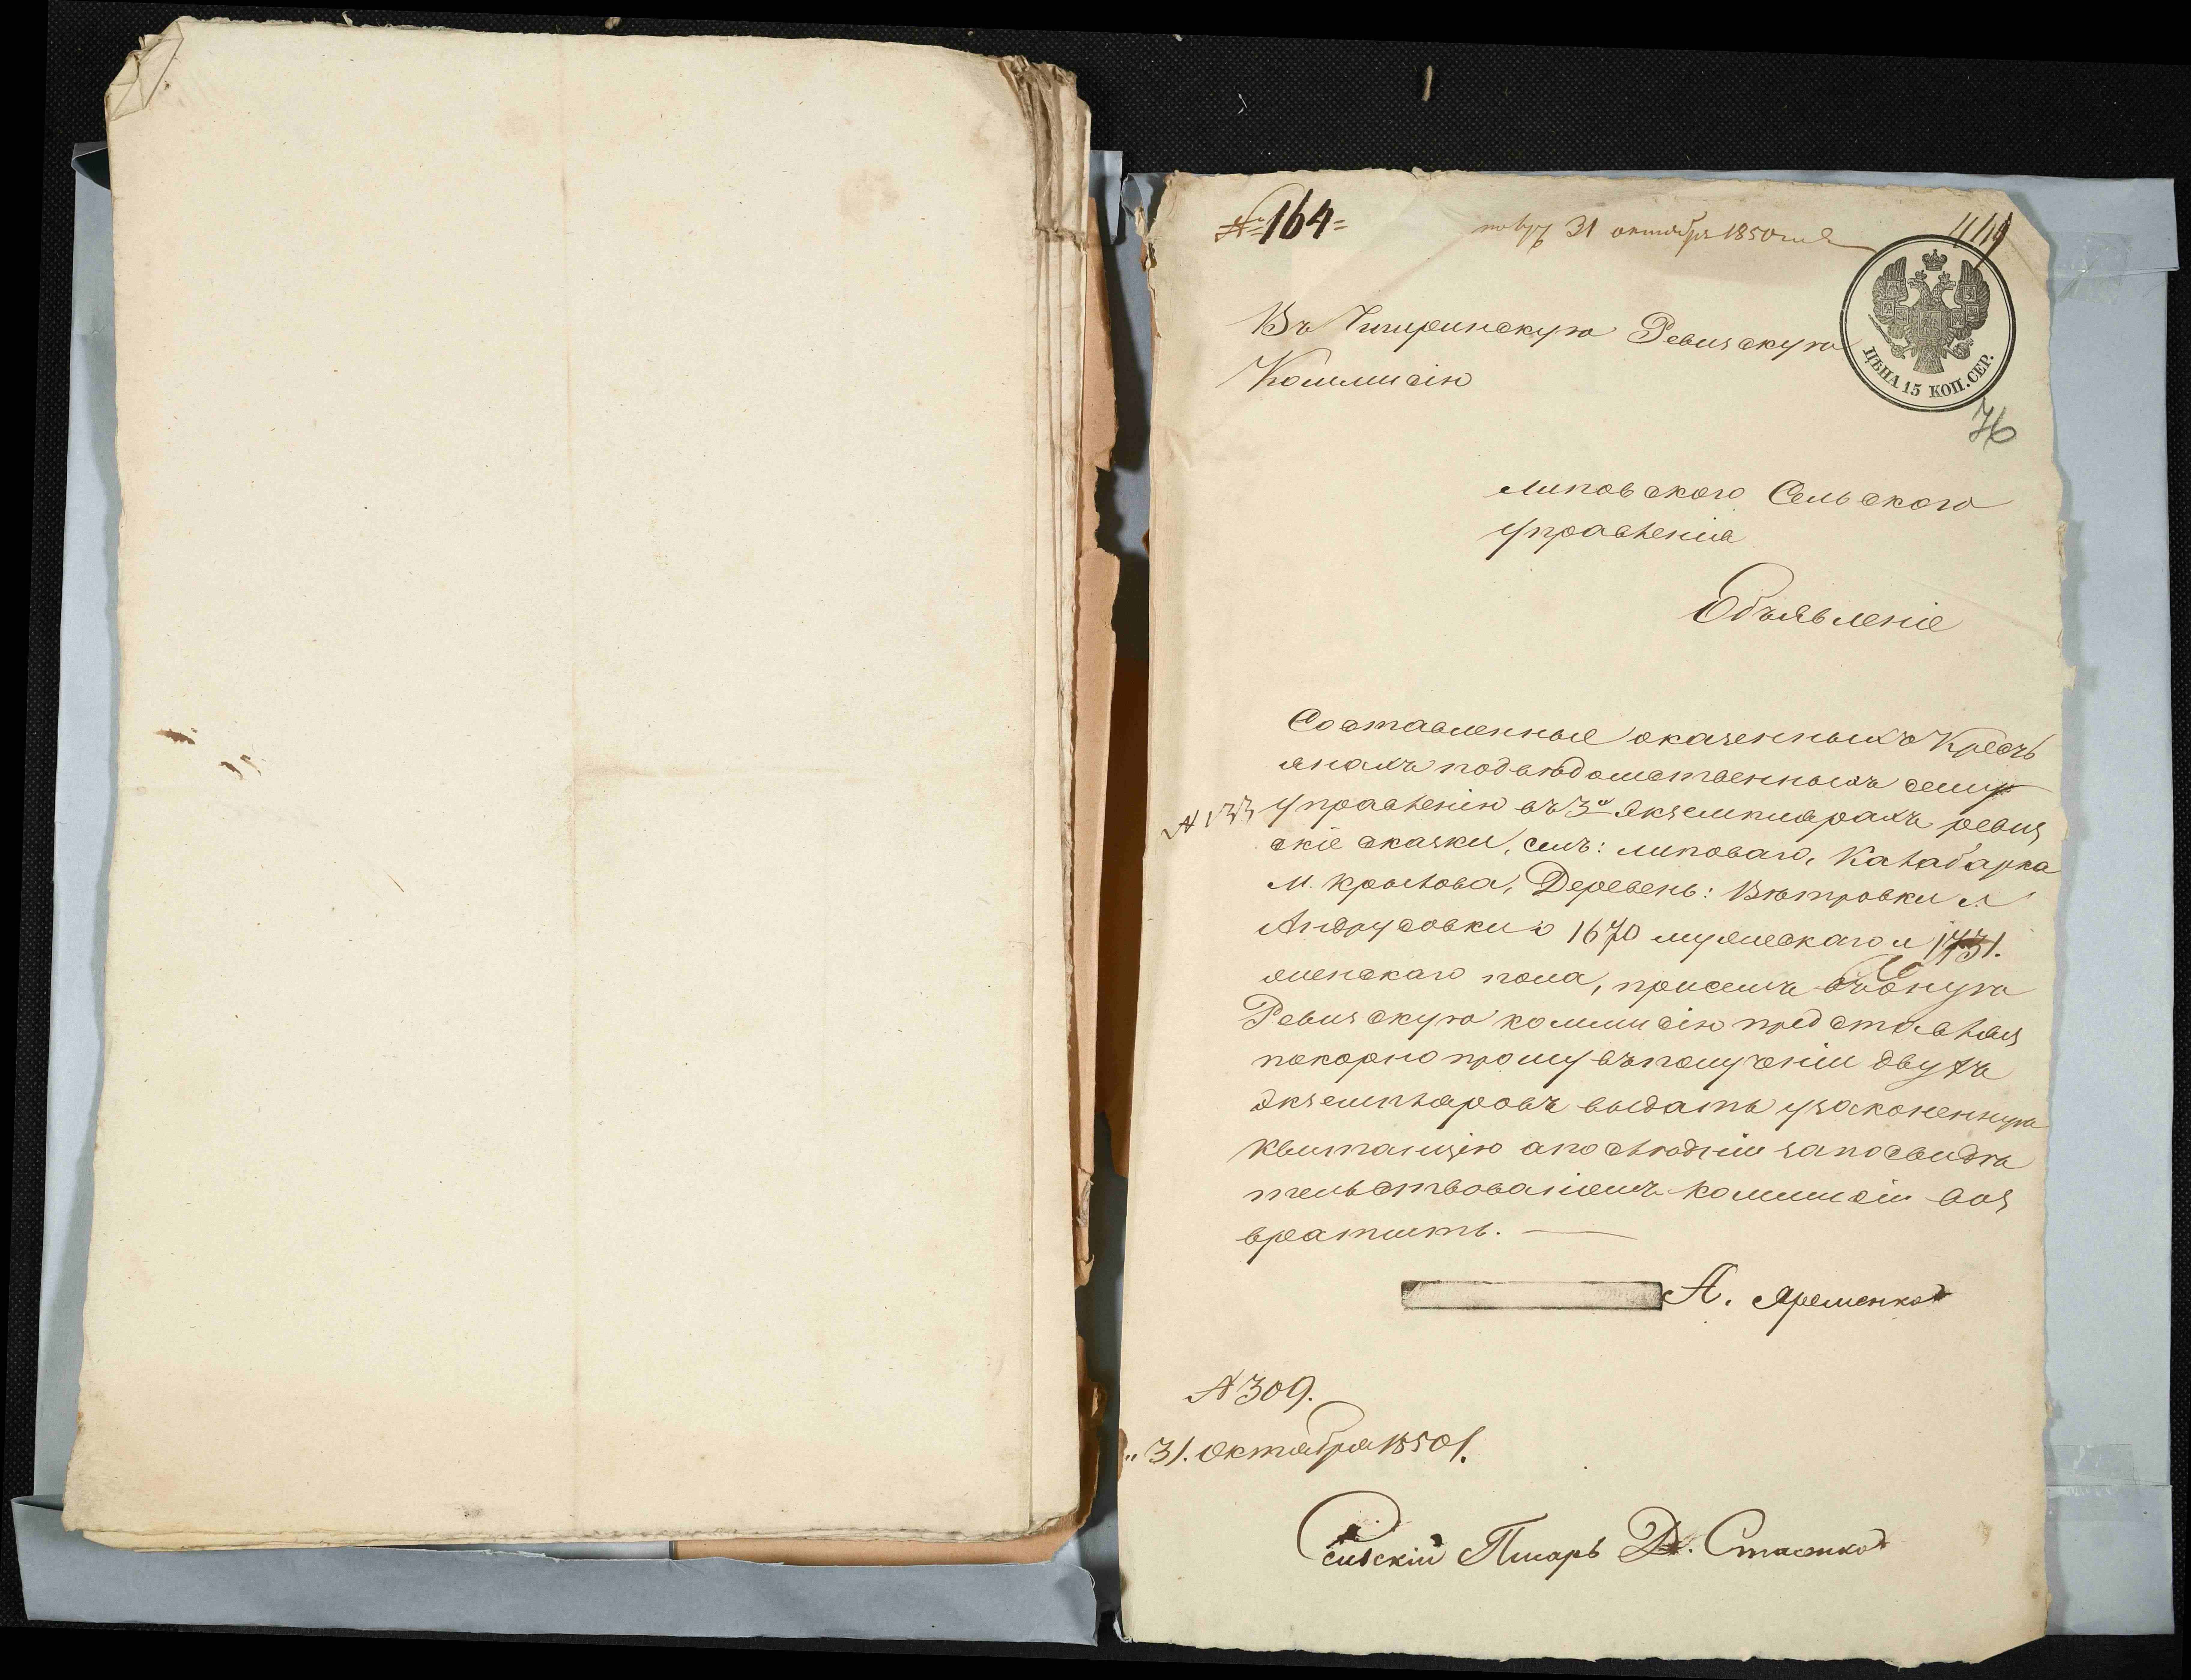 №164=
31 октября 1850 года
Въ Чигиринскую Ревизскую
Коммисію
ЦѢНА 15 КОП. СЕР.
76
Липовского Сельского
управленія
Объявленіе
Составленные оказенныхъ Кресть
янахъ подвѣдомственныхъ сему
№ 133
управленію въ 3х экземплярахъ ревиз
скіе сказки, селъ: Липоваго, Калабарка
М. Крылова, Деревень: Вѣтровки и
Андрусовки о 1670 мужескаго и 1731.
женскаго пола, присемъ въ оную
Ревизскую коммисію представляя
покорно прошу въ полученіи двухъ
экземпляровъ выдать узаконенную
Квитанцію а послѣдніи запосвидѣ
тельствованіемъ Коммисіи воз
вратить.
А. Яременко
№ 309.
„31. Октября 1850 г.
Сельскій Писарь Д. Стасенко